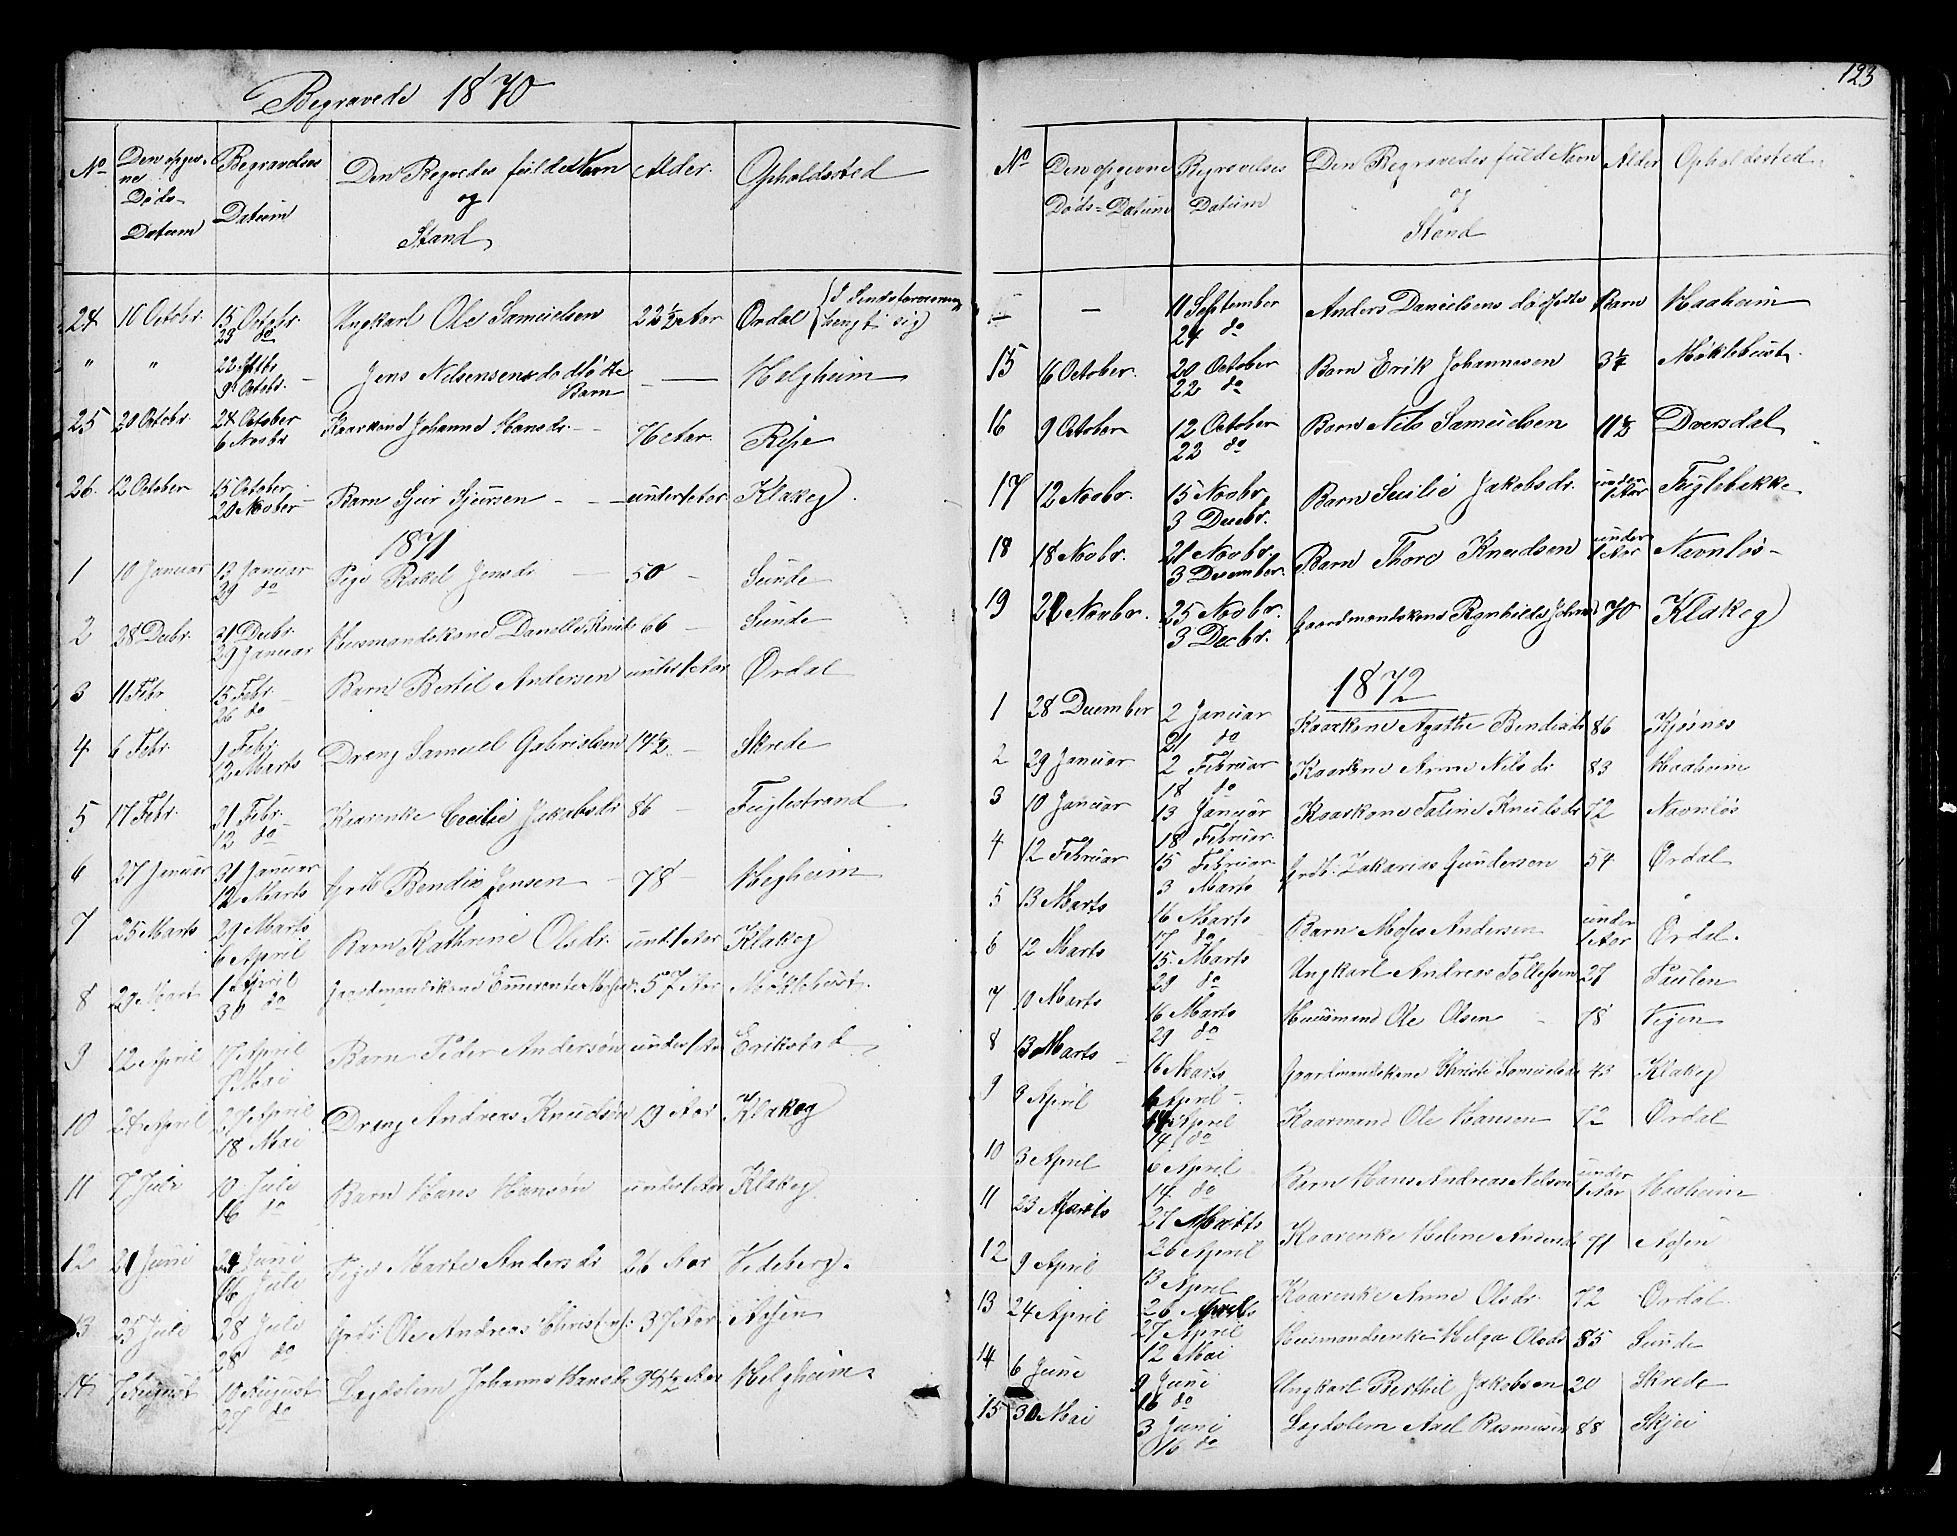 Begravede 1870
No | Den opgivne Døds-Datum | Begravelses Datum | Den Begravedes fulde Navn og Stand | Alder | Opholdsted
24 | 10 Octobr. | 15 Octobr. 23 do | Ungkarl Ole Samuelsen | 22½ Aar | Ordal (I Sindsforvirring hengt sig)
" | " | 9 Octobr. | Jens Nilsens dødfødte Barn | — | Helgheim
25 | 20 Octobr | 24 October 6 Novbr | Kaarkone Johanne Hansdr. | 76 Aar. |
26. | 12 October | 15 October 20 Novber | Barn Sjur Sjursen | under 1 Aar | Klakeg
1871
1 | 10 Januar | 13 Januar 29 do | Pige Rakel Jensdr | 50 | Sunde
2 | 28 Decbr. | 31 Decbr. 29 Januar | Husmandskone | 66 | Sunde
3 | 11 Febr. | 15 Febr. 26 do | Barn Bertil Andersen | under 1 Aar | Ordal
4 | 6 Febr. | Febr. 12 Marts | Dreng Samuel Gabrielsen | 14½ | Skrede
5 | 17 Febr. | 21 Febr. 12 do | Kaarenke Cecilie Jakobsdr | 86 | Fuglestrand
6 | 27 Januar | 31 Januar 12 Marts | Grdb Bendix Jensen | 78 | Hegheim
7 | 25 Marts | 29 Marts 6 April | Barn Kathrine Olsdr. | und. 1 Aar | Klakeg
8 | 29 Mart | 1 April 30 do | Gaardmandskone | 57 Aar | Møklebust.
9 | 12 April | 17 April Mai | Barn Peder Andersøn | under 1 Aar | Erikstad
10 | 24 April | 27 April 18 Mai | Dreng Andreas Knudsøn | 19 Aar | Klakeg
11 | 7 Juli | 10 Juli 16 do | Barn Hans Hansøn | under 1 Aar | Klakeg
12 | 21 Juni | 24 Juni 16 Juli | Pige Marte Andersdr | 26 Aar | Vedeberg.
13 | 25 Juli | 28 Juli 28 do | Grdb. Ole Andreas | 37 Aar | Aasen
14 | 7 August | 10 August 27 do | Lægdslem Johanne | Aar | Helgheim.
123
No | Den opgivne Døds-Datum | Begravelses Datum | Den Begravedes fuld Navn og Stand | Alder | Opholdssted
— | 11 September 24 do | Anders Danielsens dødfødte | Barn | Haaheim
15 | 16 October. | 20 October 22 do | Barn Erik Johannesen | 3¼ | Møklebust.
16 | 9 October | 12 October 22 do | Barn Nils Samuelsen | 11½ | Dversdal
17 | 12 Novbr. | 15 Novbr. 3 Decbr. | Barn Jakobsdr. | under 1 Aar | Fuglebakke
18 | 18 Novbr. | 21 Novbr. 3 December. | Barn Thore Knudsen | under 1 Aar | Navnløs
19 | 21 Novbr. | 25 Novbr. 3 Decbr. | Gaardmandskone Ragnhilde | 70 | Klakeg
1872
1 | 28 December | 2 Januar 21 do | Kaarkone Agathe Bendixdr | 86 | Kjøsnes
2 | 29 Januar | 2 Februar 18 do | Kaarkone Anne Nilsdr | 83 | Haaheim
3 | 10 Januar | 13 Januar 18 Februar | Kaarkone Knudsdr | 72 | Navnløs
4 | 12 Februar | 15 Februar 3 Marts | Grdb. Zakarias Gundersen | 54 | Ordal
5 | 13 Marts | 16 Marts 17 do | Barn Moses Andersen | under 1 Aar | Ordal.
6 | 12 Marts | 15 Marts 29 do | Ungkarl Andreas Tollefsen | 27 |
7 | 10 Marts | 16 Marts 29 do | Huusmand Ole Olsen | 78 |
8 | 13 Marts | 16 Marts | Gaardmandskone Christi Samuelsdr | 43 | Klakeg
9 | 9 April | April 14 do | Kaarmand Ole Hansen | 72 | Ordal
10 | 3 April | 6 April 14 do | Barn Hans Andreas Nilsen | under 1 Aar | Haaheim
11 | 23 Marts | 27 Marts 26 April | Kaarenke Helene | 71 | Aasen
12 | 9 April | 13 April 26 April | Kaarenke Anne Olsdr. | 72 | Ordal
13 | 24 April | 27 April 12 Mai | Husmandsenke Helga Olsdr | 85 | Sunde
14 | 6 Juni | 9 Juni 16 do | Ungkarl Berthil Jakobsen | 20 | Skrede
15 | 30 Mai | 3 Juni 16 do | Lægdslem Axel Rasmusen | 88 | Skjei